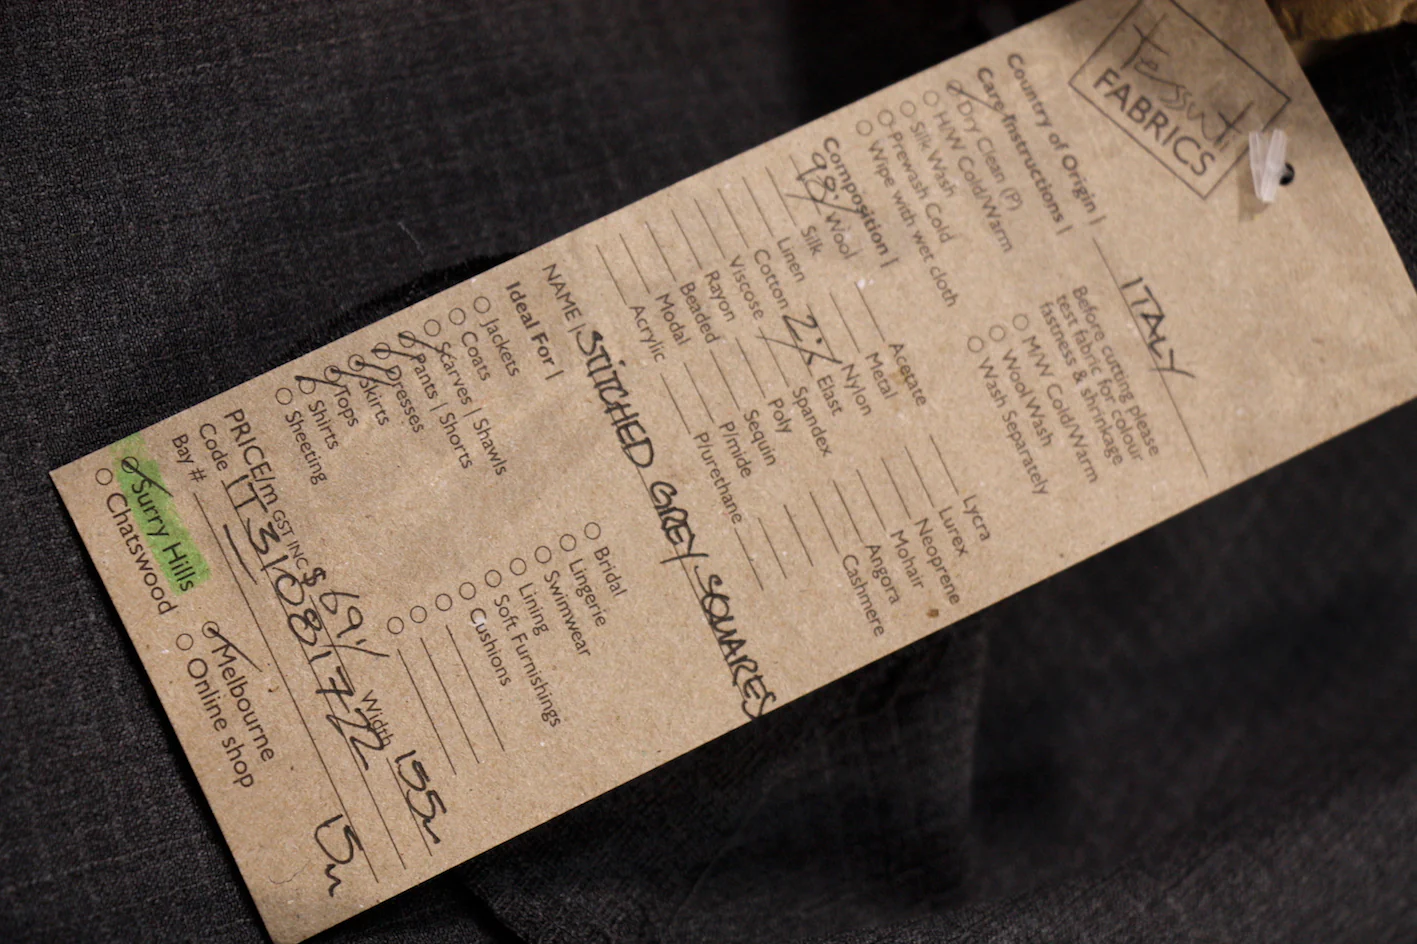 tessuti
FABRICS
Country of Origin | ITALY
Care Instructions |
Dry Clean (P)
H/W Cold/Warm
Silk Wash
Prewash Cold
Wipe with wet cloth
Before cutting please
test fabric for colour
fastness & shrinkage
M/W Cold/Warm
Wool Wash
Wash Separately
Composition |
98% Wool
Silk
Linen
Cotton
Viscose
Rayon
Beaded
Modal
Acrylic
Acetate
Metal
Nylon
2% Elast
Spandex
Poly
Sequin
P/nide
P/urethane
Lycra
Lurex
Neoprene
Mohair
Angora
Cashmere
NAME | STITCHED GREY SQUARES
Ideal For |
Jackets
Coats
Scarves | Shawls
Pants | Shorts
Dresses
Skirts
Tops
Shirts
Sheeting
Bridal
Lingerie
Swimwear
Lining
Soft Furnishings
Cushions
PRICE/m GST INC $69 Width 155
Code IT31081722
Bay # 15m
Surry Hills
Melbourne
Chatswood
Online shop